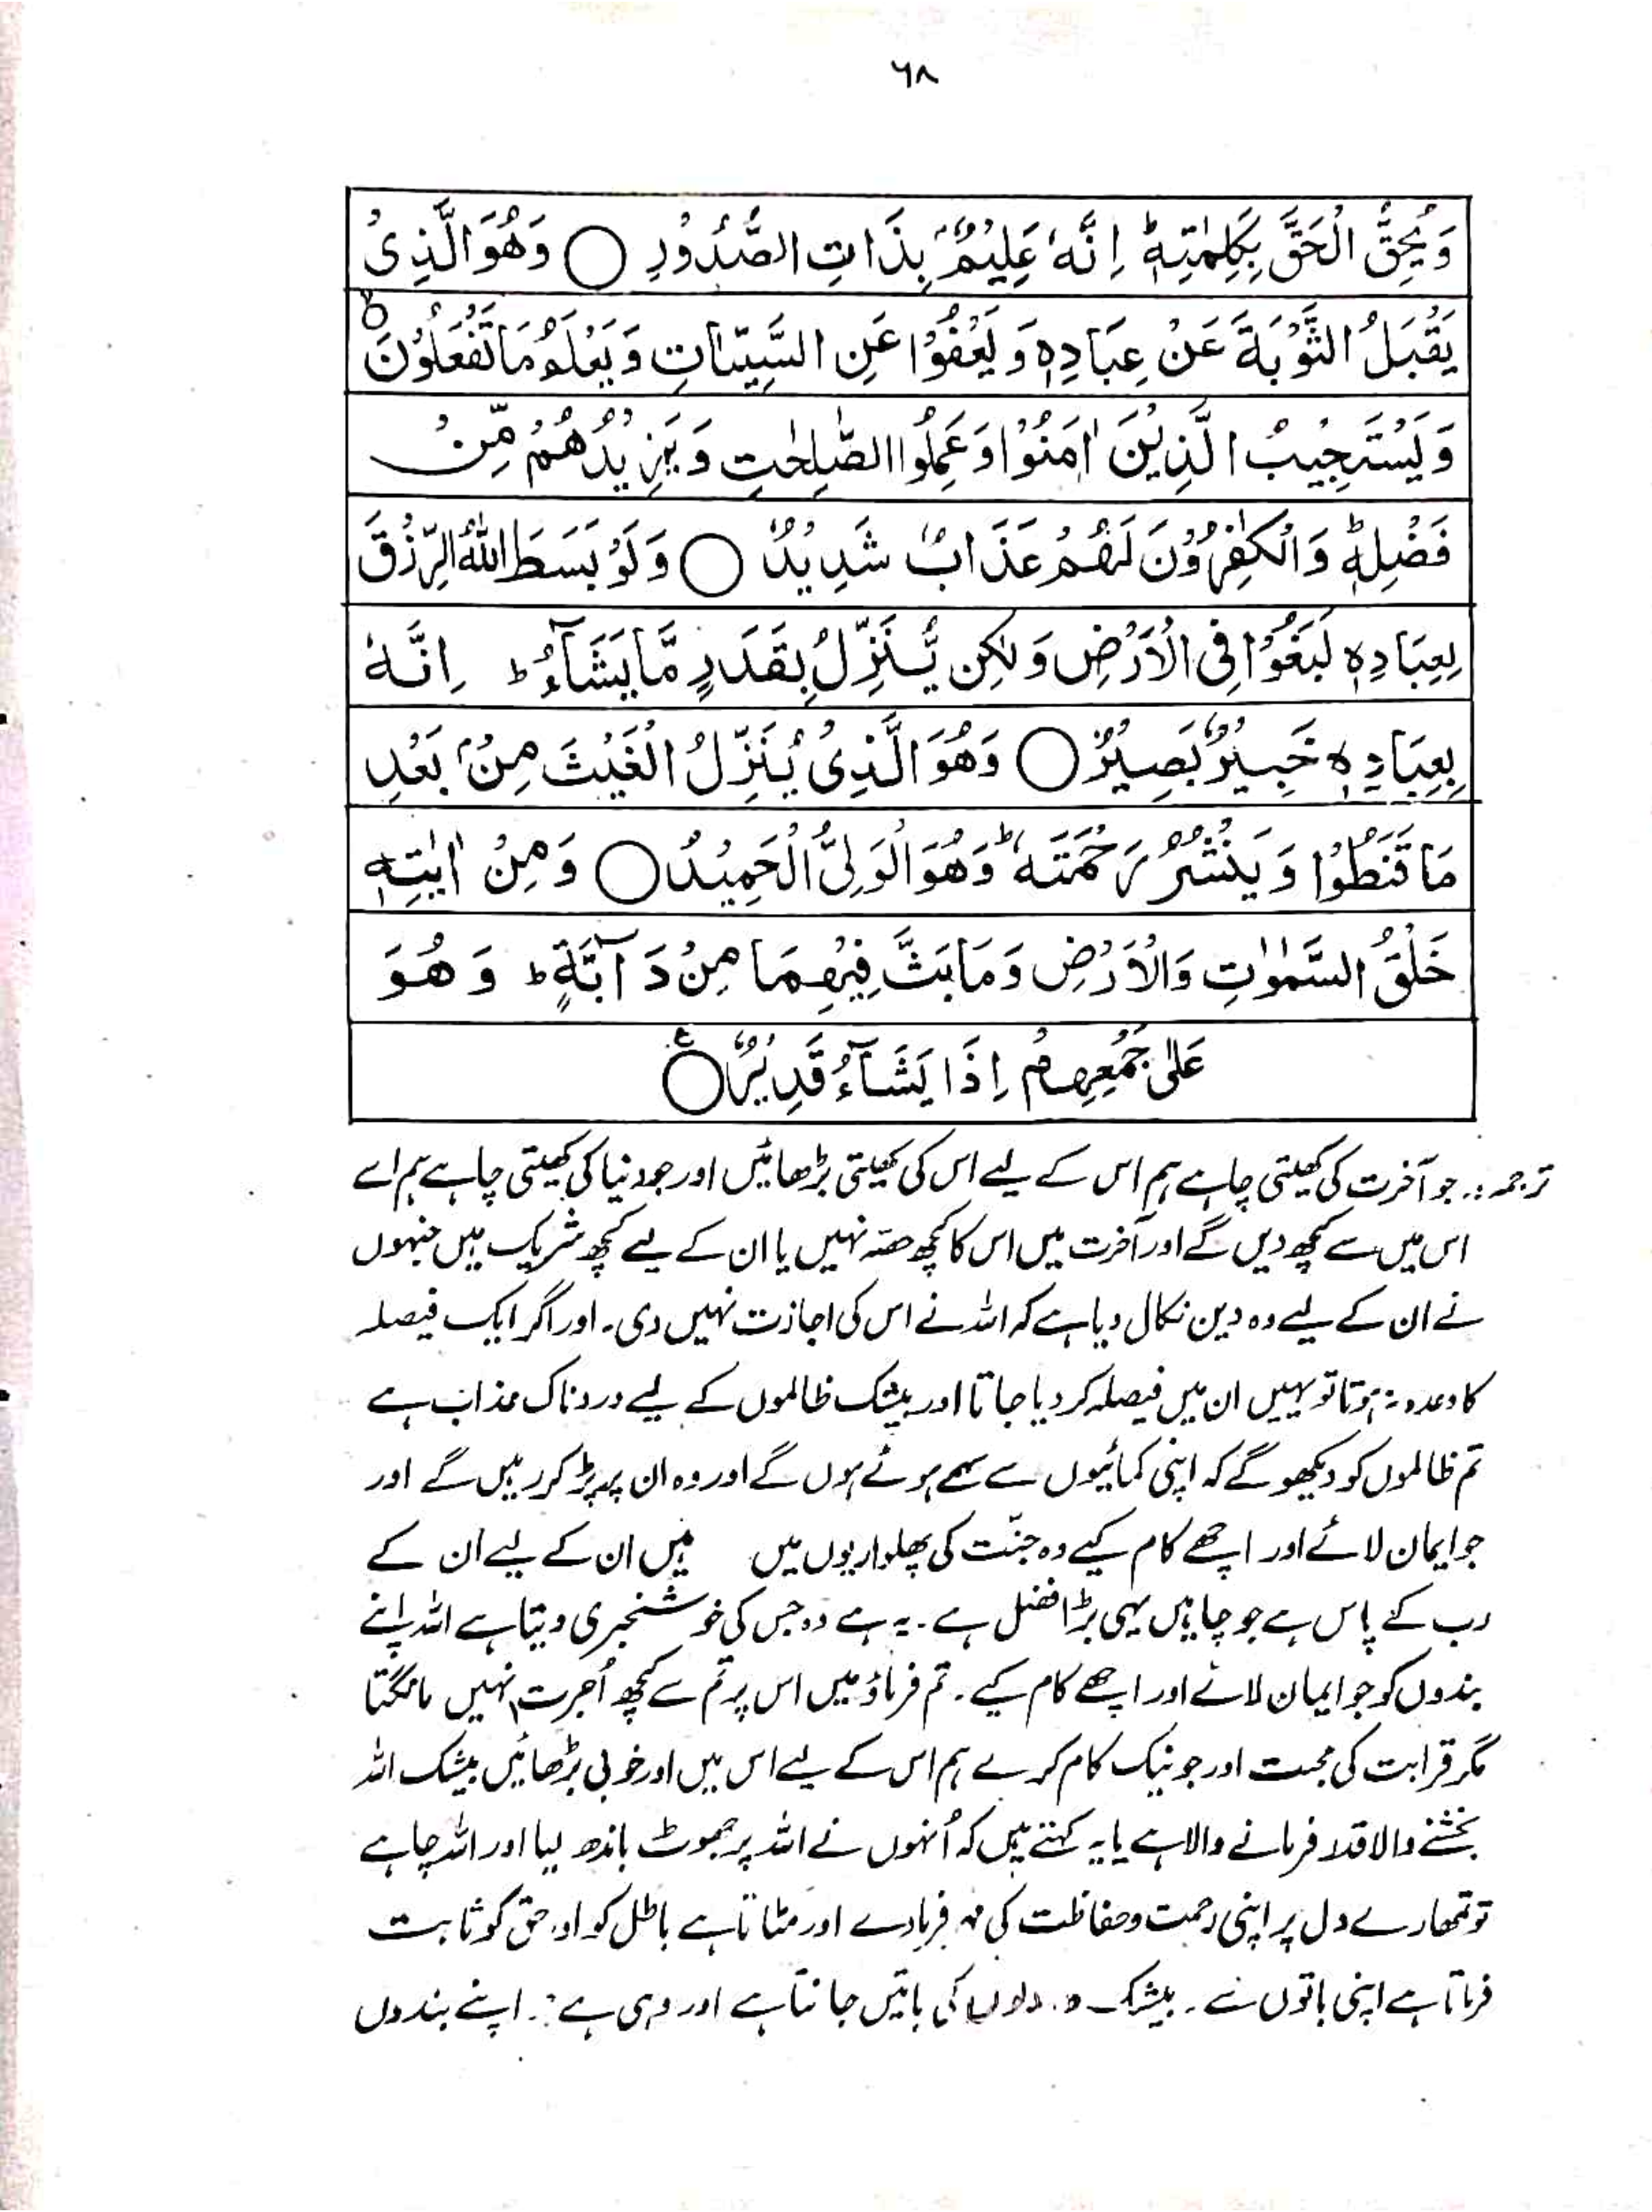 ۶۸
وَيُحِقُّ الْحَقَّ بِكَلِمٰتِهٖ ؕ اِنَّهٗ عَلِيْمٌۢ بِذَاتِ الصُّدُوْرِ ○ وَهُوَ الَّذِيْ
يَقْبَلُ التَّوْبَةَ عَنْ عِبَادِهٖ وَيَعْفُوْا عَنِ السَّيِّاٰتِ وَيَعْلَمُ مَا تَفْعَلُوْنَ ○
وَيَسْتَجِيْبُ الَّذِيْنَ اٰمَنُوْا وَعَمِلُوا الصّٰلِحٰتِ وَيَزِيْدُهُمْ مِّنْ
فَضْلِهٖ ؕ وَالْكٰفِرُوْنَ لَهُمْ عَذَابٌ شَدِيْدٌ ○ وَلَوْ بَسَطَ اللّٰهُ الرِّزْقَ
لِعِبَادِهٖ لَبَغَوْا فِى الْاَرْضِ وَلٰكِن يُّنَزِّلُ بِقَدَرٍ مَّا يَشَآءُ ؕ اِنَّهٗ
بِعِبَادِهٖ خَبِيْرٌۢ بَصِيْرٌ ○ وَهُوَ الَّذِيْ يُنَزِّلُ الْغَيْثَ مِنْۢ بَعْدِ
مَا قَنَطُوْا وَيَنْشُرُ رَحْمَتَهٗ ؕ وَهُوَ الْوَلِىُّ الْحَمِيْدُ ○ وَمِنْ اٰيٰتِهٖ
خَلْقُ السَّمٰوٰتِ وَالْاَرْضِ وَمَا بَثَّ فِيْهِمَا مِنْ دَآبَّةٍ ؕ وَهُوَ
عَلٰى جَمْعِهِمْ اِذَا يَشَآءُ قَدِيْرٌ ○ ع
ترجمہ :۔ جو آخرت کی کھیتی چاہے ہم اس کے لیے اس کی کھیتی بڑھائیں اور جو دنیا کی کھیتی چاہے ہم اسے
اس میں سے کچھ دیں گے اور آخرت میں اس کا کچھ حصہ نہیں یا ان کے لیے کچھ شریک ہیں جنہوں
نے ان کے لیے وہ دین نکال دیا ہے کہ اللہ نے اس کی اجازت نہیں دی۔ اور اگر ایک فیصلہ
کا وعدہ نہ ہوتا تو یہیں ان میں فیصلہ کر دیا جاتا اور بیشک ظالموں کے لیے دردناک عذاب ہے
تم ظالموں کو دیکھو گے کہ اپنی کمائیوں سے سہمے ہوئے ہوں گے اور وہ ان پر پڑ کر رہیں گے اور
جو ایمان لائے اور اچھے کام کیے وہ جنّت کی پھلواریوں میں ہیں ان کے لیے ان کے
رب کے پاس ہے جو چاہیں یہی بڑا فضل ہے۔ یہ ہے وہ جس کی خوشخبری دیتا ہے اللہ اپنے
بندوں کو جو ایمان لائے اور اچھے کام کیے۔ تم فرماؤ میں اس پر تم سے کچھ اُجرت نہیں مانگتا
مگر قرابت کی محبت اور جو نیک کام کرے ہم اس کے لیے اس میں اور خوبی بڑھائیں بیشک اللہ
بخشنے والا قدر فرمانے والا ہے یا یہ کہتے ہیں کہ اُنہوں نے اللہ پر جھوٹ باندھ لیا اور اللہ چاہے
تو تمھارے دل پر اپنی رحمت و حفاظت کی مہر فرمادے اور مٹاتا ہے باطل کو اور حق کو ثابت
فرماتا ہے اپنی باتوں سے۔ بیشک وہ دلوں کی باتیں جانتا ہے اور وہی ہے :۔ اپنے بندوں